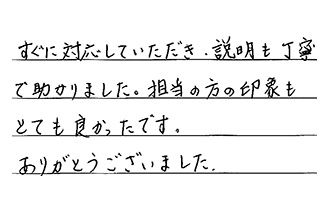 すぐに対応していただき、説明も丁寧
で助かりました。担当の方の印象も
とても良かったです。
ありがとうございました.